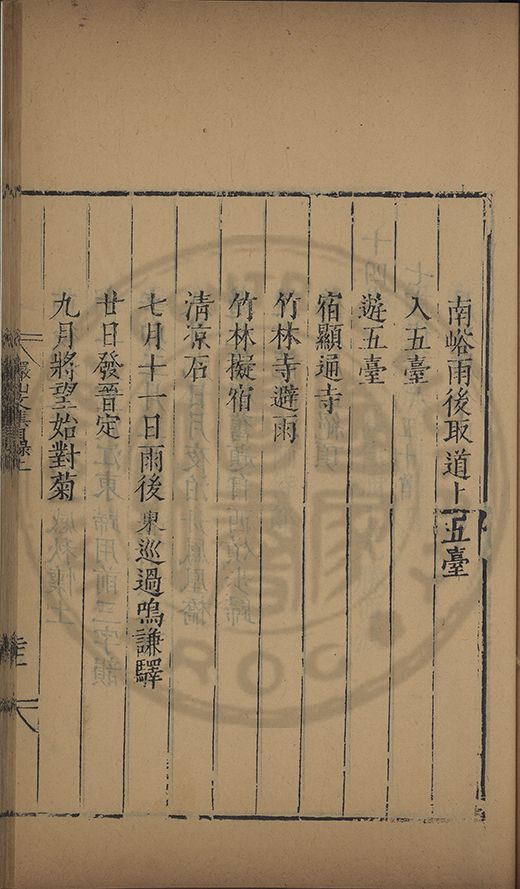 南峪雨後取道上五臺
入五臺
遊五臺
宿顯通寺
竹林寺避雨
竹林擬宿
清凉石
七月十一日雨後東巡過鳴謙驛
廿日發晉定
九月將望始對菊